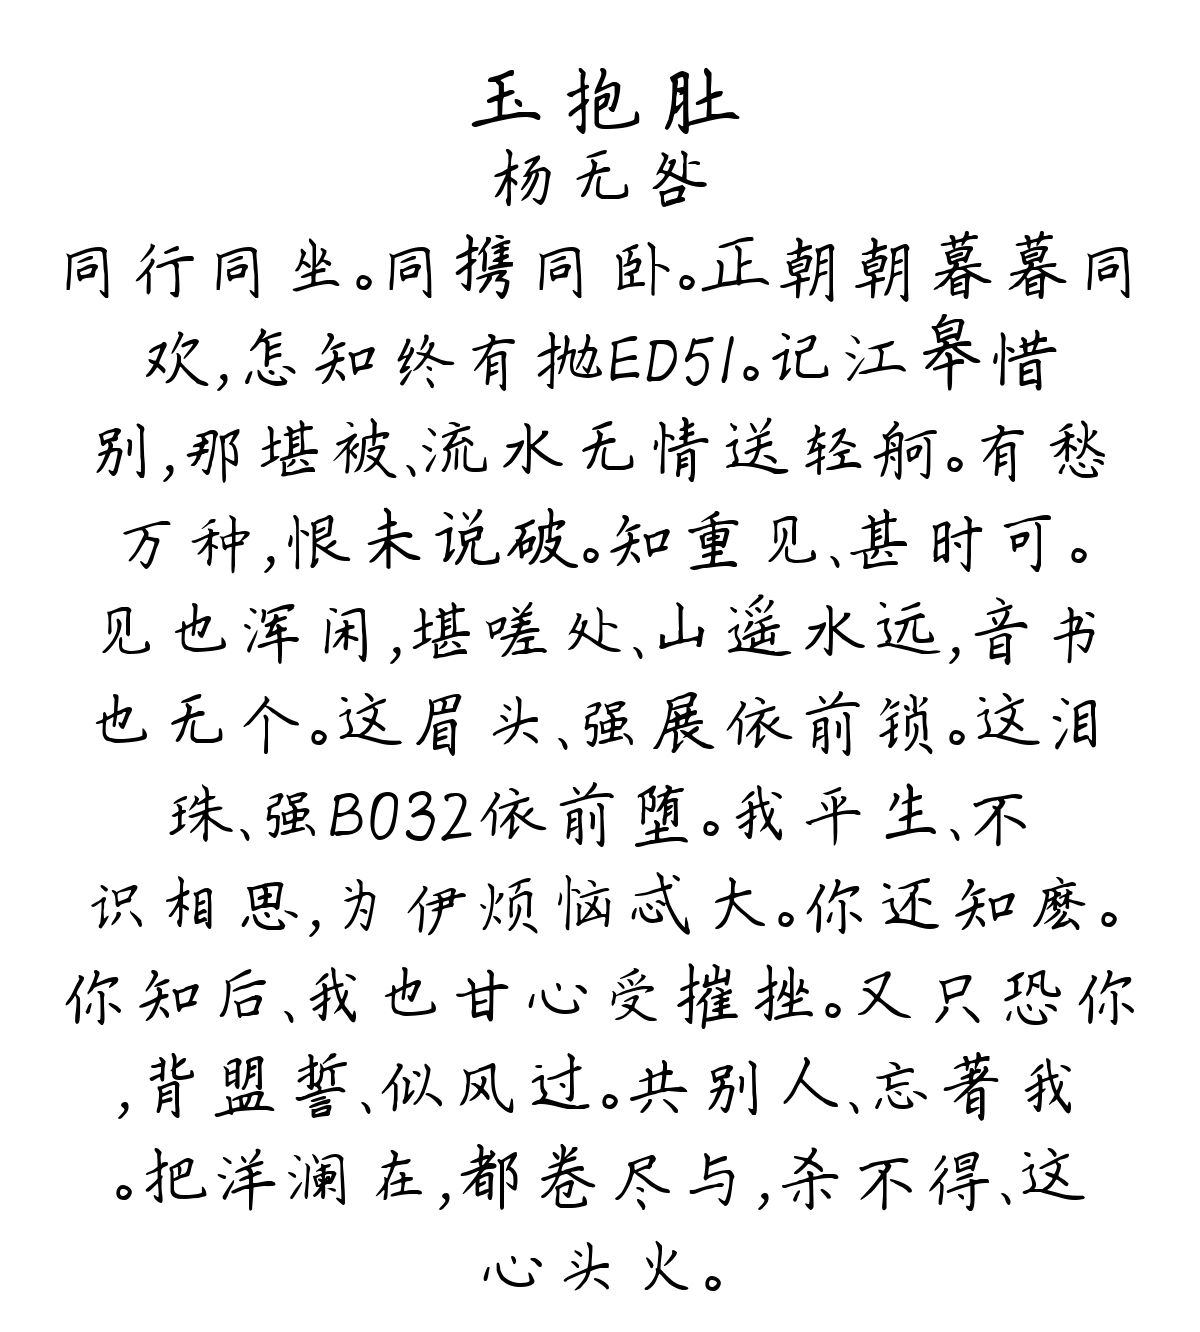 玉抱肚
杨无咎
同行同坐。同携同卧。正朝朝暮暮同
欢,怎知终有抛ED51。记江皋惜
别,那堪被、流水无情送轻舸。有愁
万种,恨未说破。知重见、甚时可。
见也浑闲,堪嗟处、山遥水远,音书
也无个。这眉头、强展依前锁。这泪
珠、强B032依前堕。我平生、不
识相思,为伊烦恼忒大。你还知麽。
你知后、我也甘心受摧挫。又只恐你
,背盟誓、似风过。共别人、忘著我
。把洋澜在,都卷尽与,杀不得、这
心头火。